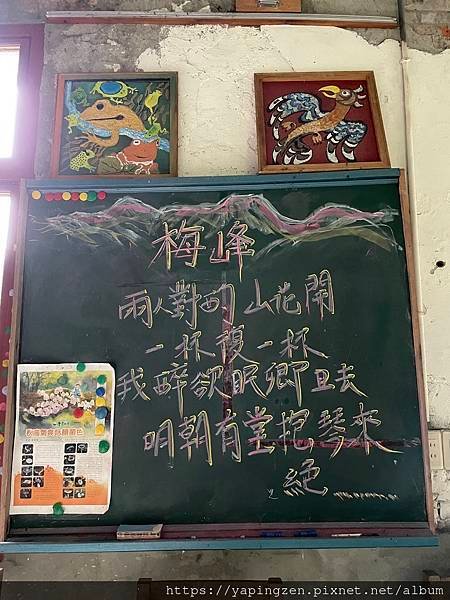 梅峰
兩人對酌山花開
一杯復一杯
我醉欲眠卿且去
明朝有意抱琴來
絕
https://yapingzen.pixnet.net/album